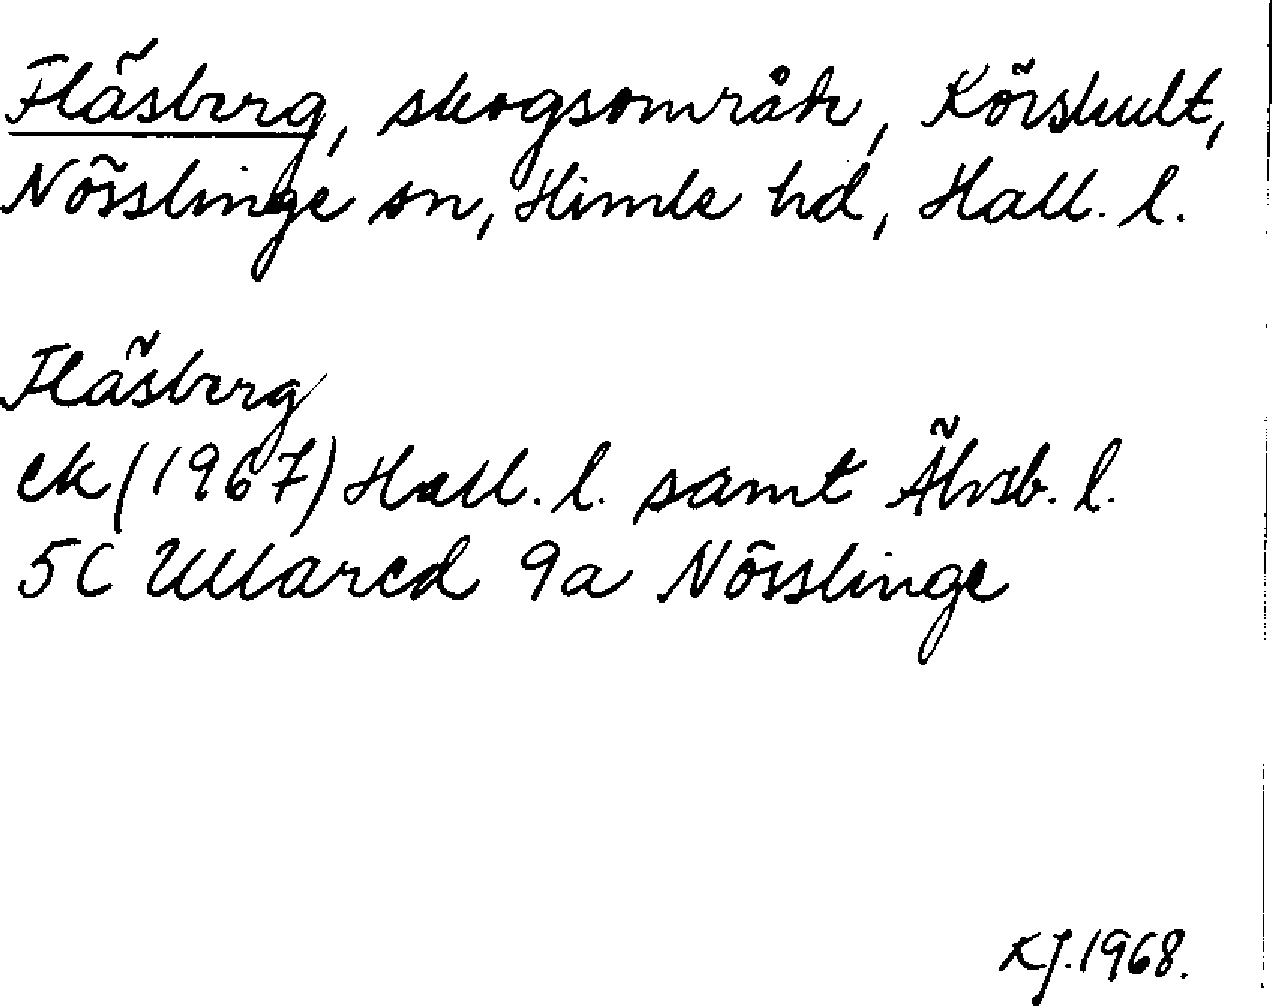 Fläsberg, skogsområde, Körskult,
Nösslinge sn, Himle hd, Hall. l.
Fläsberg
ek (1967) Hall. l. samt Älvsb. l.
5C Ullared 9a Nösslinge
KJ. 1968.